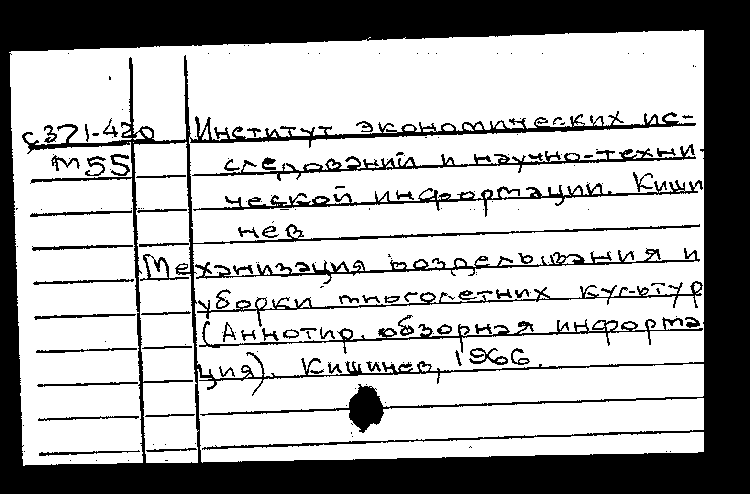 с371-420 Институт экономических ис-
м55 следований и научно-техни-
ческой информации. Кишин
нев
Механизация возделывания и
уборки многолетних культур
(Аннотир. обзорная информа
ция). Кишинев, 1966.